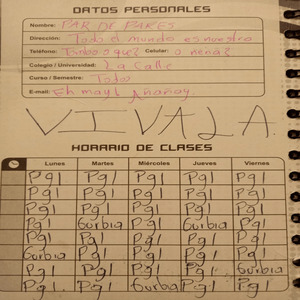 DATOS PERSONALES
Nombre: PAR DE PARES
Dirección: Todo el mundo es nuestro
Teléfono: Bobo o que? Celular: o nena?
Colegio / Universidad: La Calle
Curso / Semestre: Todos
E-mail: Eh mayl Añañay.
VIVA LA.
HORARIO DE CLASES
Lunes Martes Miércoles Jueves Viernes
Pg1 Pg1 Pg1 Pg1 Pg1
Pg1 Pg1 Pg1 Pg1 Pg1
Pg1 Pg1 Pg1 Pg1 Pg1
Pg1 Gurbia Pg1 Gurbia Pg1
Pg1 Pg1 Pg1 Pg1 Pg1
Gurbia Pg1 Pg1 Pg1 Pg1
Pg1 Pg1 Pg1 Pg1 Gurbia
Pg1. Pg1 Gurbia Pg1 Pg1